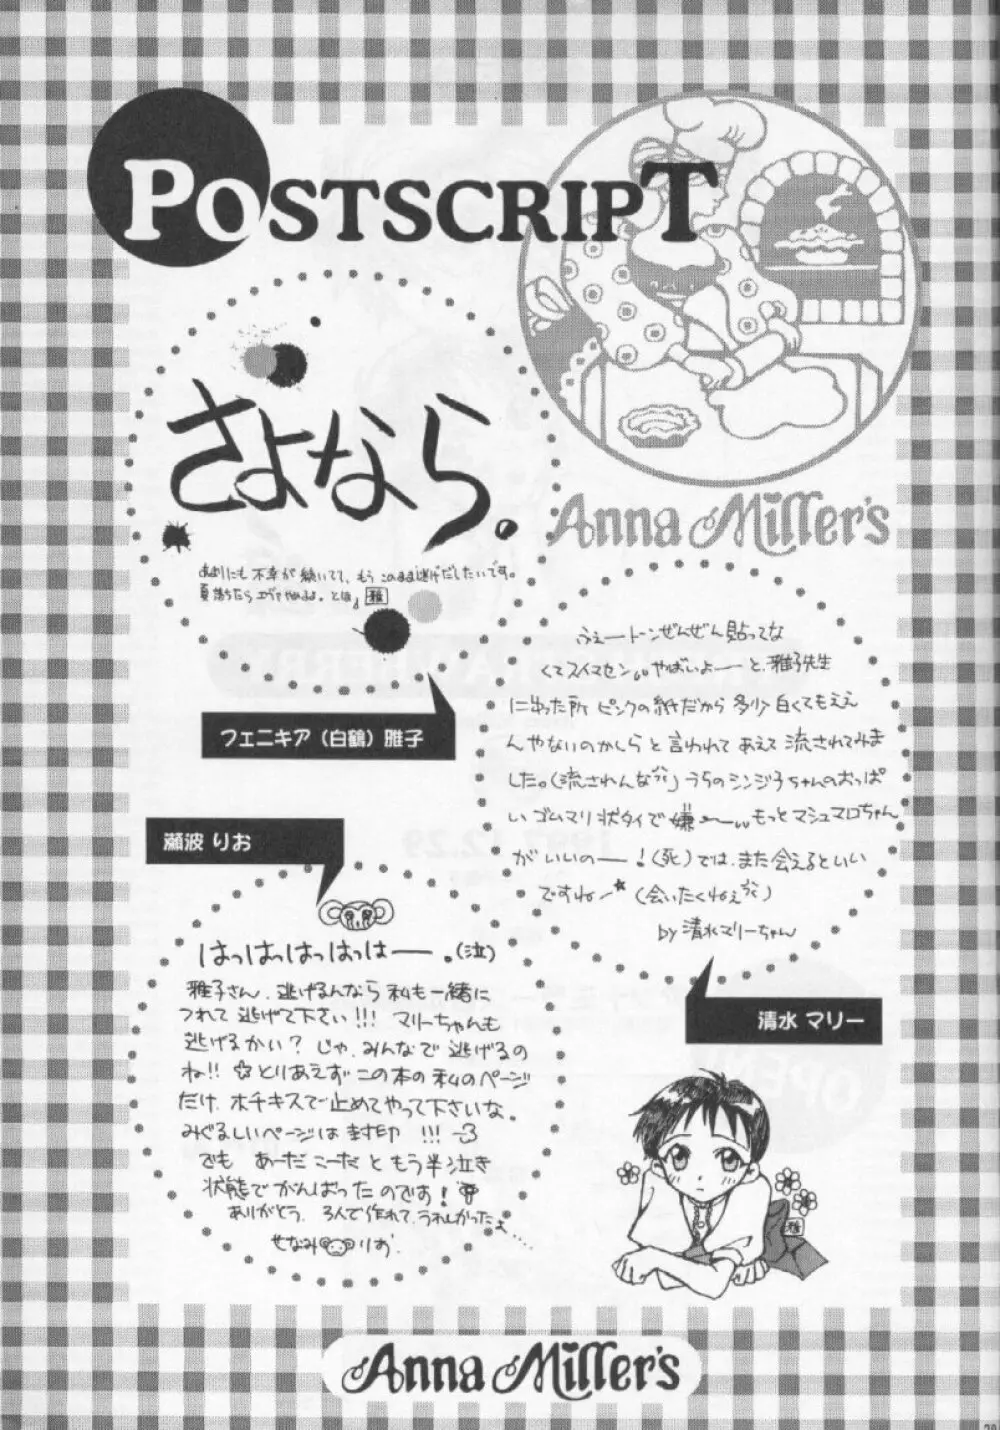 POSTSCRIPT
さよなら。
あまりにも不幸が続いてて、もうこのまま逃げだしたいです。
夏落ちたらエヴァやめるよ。とほ 雅
フェニキア（白鶴）雅子
Anna Miller's
ふぇートーンぜんぜん貼ってな
くてスイマセン。やばいよーーと、雅子先生
に出った所 ピンクの紙だから 多少白くてもええ
んやないのかしら と言われて あえて 流されてみま
した。(流されんな) うちのシンジ子ちゃんのおっぱ
い ゴムマリ状タイで 嫌 もっと マシュマロちゃん
が いいのー！(死) では、また会えるといい
ですね (会いたくねぇ)
by 清水マリーちゃん
清水 マリー
瀬波 りお
はっはっはっはっはー。(泣)
雅子さん、逃げるんなら 私も一緒に
つれて 逃げて下さい!!! マリーちゃんも
逃げるかい？ じゃ、みんなで 逃げるの
ね!! ☆とりあえず この本の 私のページ
だけ、ホチキスで止めてやって下さいな。
みぐるしいページは 封印 !!!
でも あーだ こーだ と もう半泣き
状態で がんばった のです！
ありがとう、3人で作れて、うれしかったよ....
せなみ りお
雅
Anna Miller's